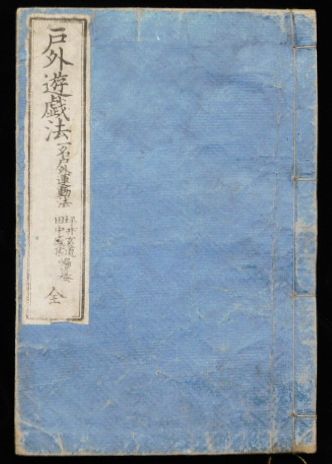 戸外遊戯法
一名戸外運動法
坪井玄道
田中盛業 編纂
全